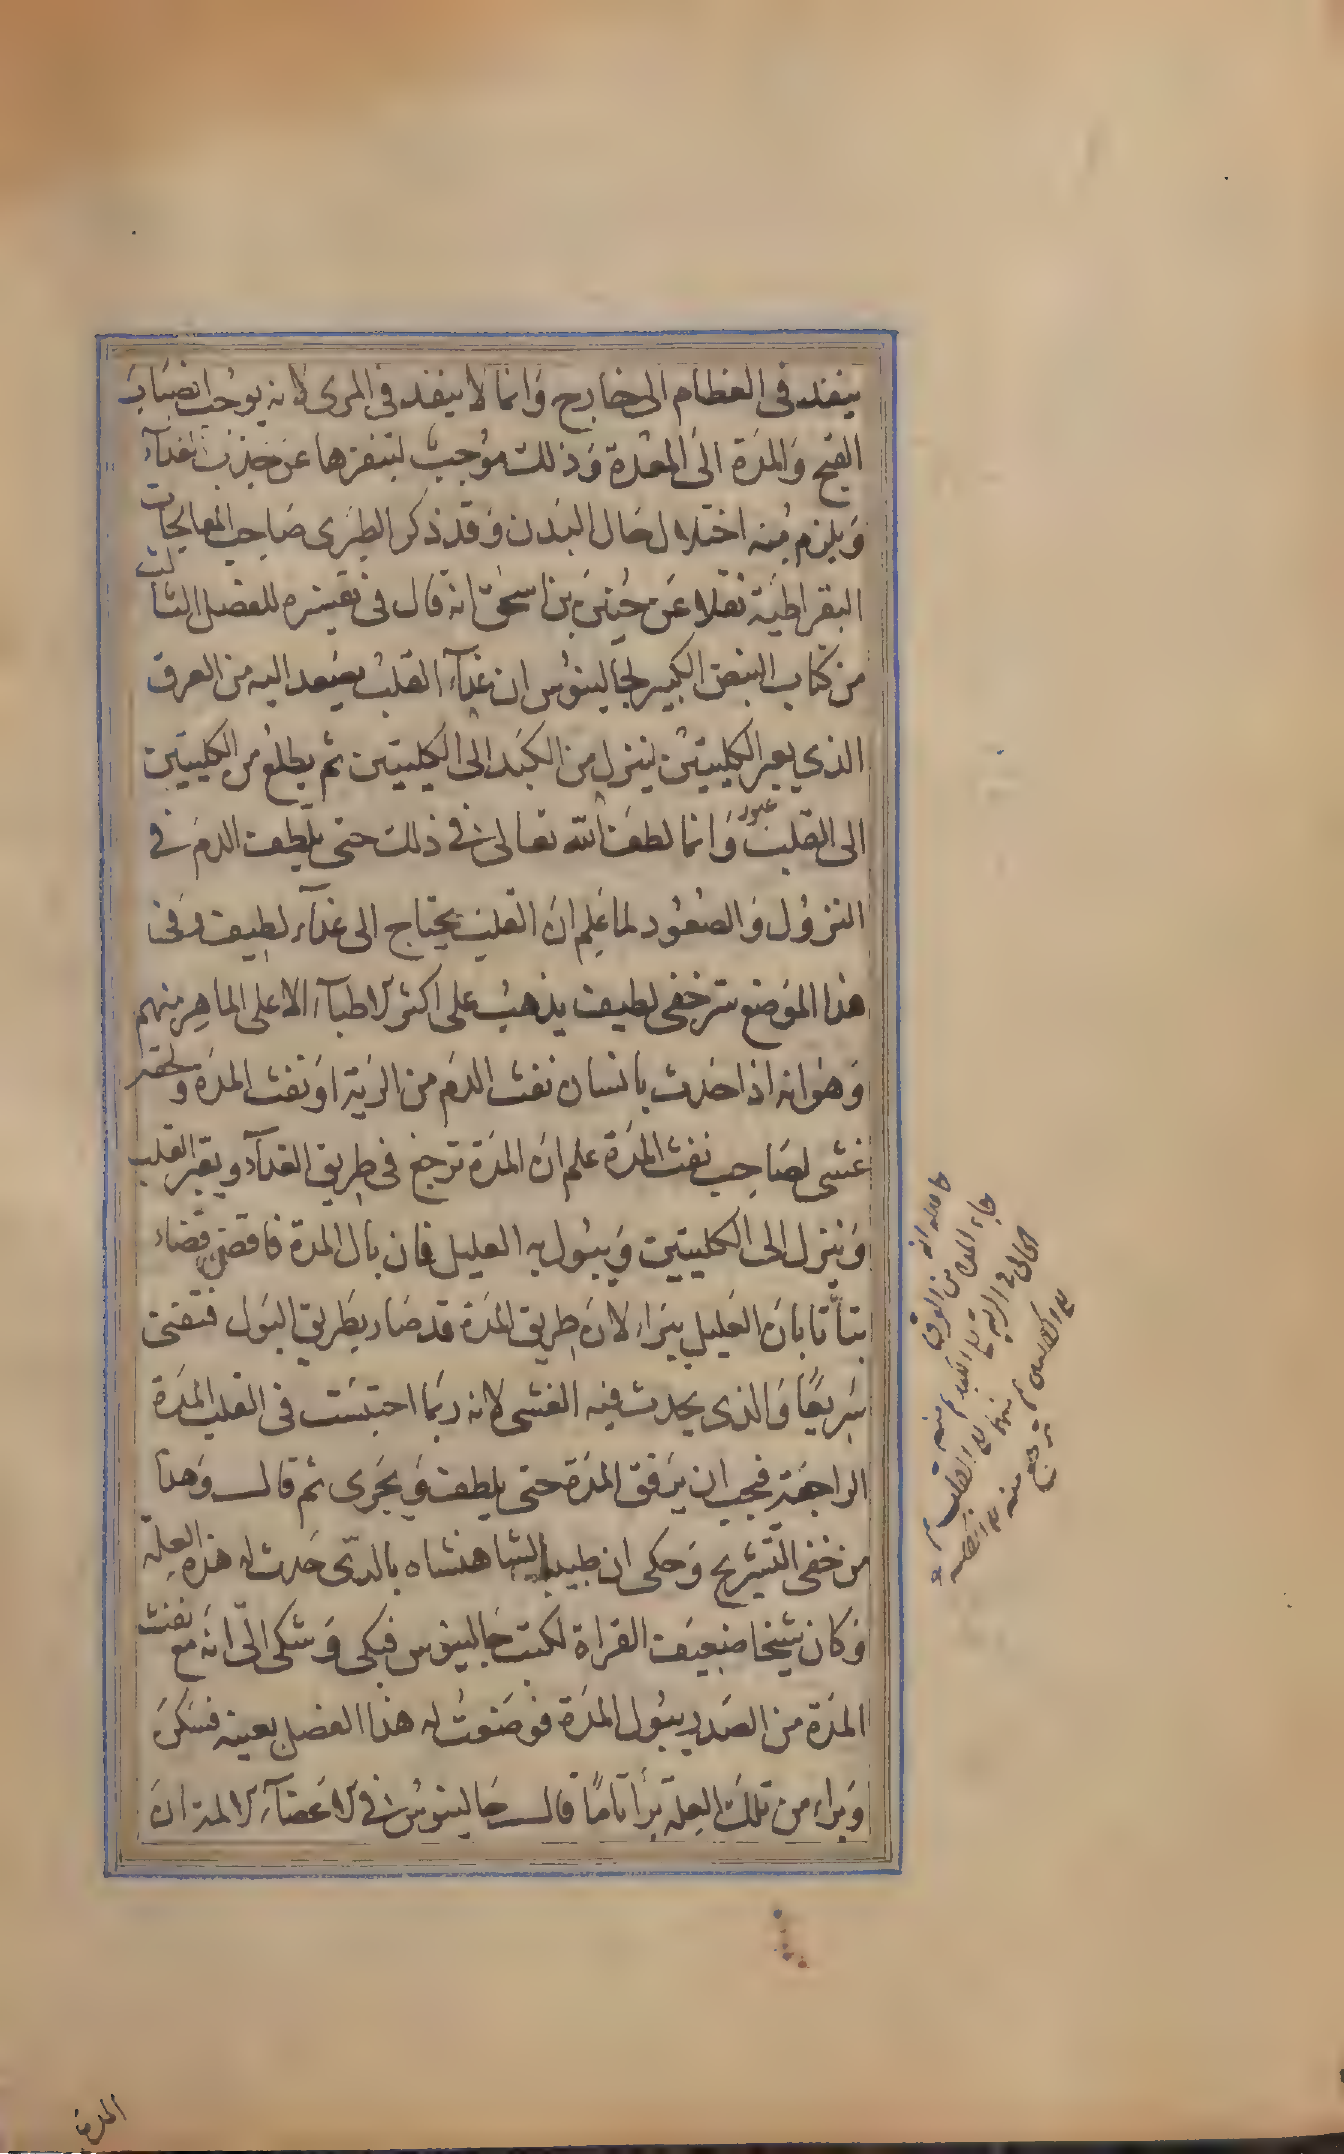 ينفذ فى العظام الى خارج وَانما لا ينفذ فى المرى لانه يوُجب انصبَاب
القيح وَالمدَة الىَ المعْدة وَذلك موُجبْ لتنفرها عَن جذبْ الغدآء
وَيلزم مِنه اختلال حَال البَدن وَقد ذكر الطبَرى صَاحِب المعالجات
البقراطيَة نقلا عَن حُنين بن اسحٰق انهّ قال فى تفسيره للفصل الثالث
من كتاب النبض الكبير لجَالينوُس ان غذآء القلبْ يصْعد اليه من العرق
الذي يعبر الكليتيْن ينزل من الكبَد الى الكليتين ثم يطلعُ من الكليتين
الى القلبْ عبور وَانما لطفَ الله تعالى فى ذلك حتى يلطف الدمَ فى
النزوُل وَالصعُود لما عَلِم انَ القلبَ يحتاج الى غذآء لطيف وَفى
هذا الموَضع سَر خفى لطيف يذهبُ على اكثر الاطبآء الا على الماهِر منهم
وَهوَ انه اذا حَدث بانسان نفث الدَم من الرَية اوَ نفث المدَة وَلحقه
غشى لصَاحِب نفث المدَة علم انَ المدَة ترجع فى طريق الغدآء ويعبر القلب
وَينزل الى الكليتين وَيبُول به العليل فان بال المدة فاقض قضاء
بتأتا بانَ العَليل يبَراء لانَ طِريق المدَة قد صَار بطَريق البَول فتنقى
سَريعًا وَالذى يحدث فيه الغشى لانه ربَما احتبسَت فى القلب المدَة
الراجعَة فيجب ان يَرقق المدَة حتى يلطف وَيجَرى ثم قال وَهذا
من خفى التشَريح وَحكى ان طبيب الشاهنشاه بالرّى حَدث له هذه العِلّة
وَكان شيخا ضعيفَ القراة لكتب جَالينوس فبكى وَشكى الىّ انَه مَع نفث
المدَة من الصَدر يبوُل المدَة فوصَفتُ له هذا الفصل بعينه فسَكنَ
وَبراء من تلكَ العِلة برَأ تامًا قال جَالينوسُ فى الاعَضآء الالمة انَ
المدة